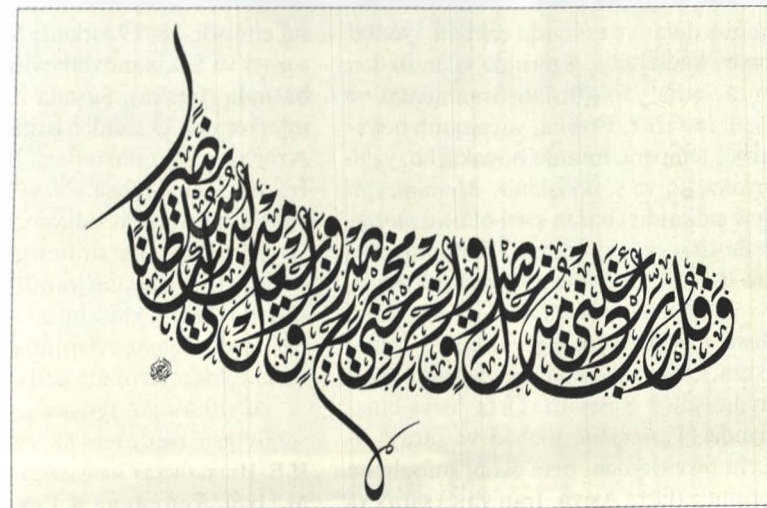 وَقُل رَّبِّ أَدْخِلْنِي مُدْخَلَ صِدْقٍ وَأَخْرِجْنِي مُخْرَجَ صِدْقٍ وَاجْعَل لِّي مِن لَّدُنكَ سُلْطَانًا نَّصِيرًا